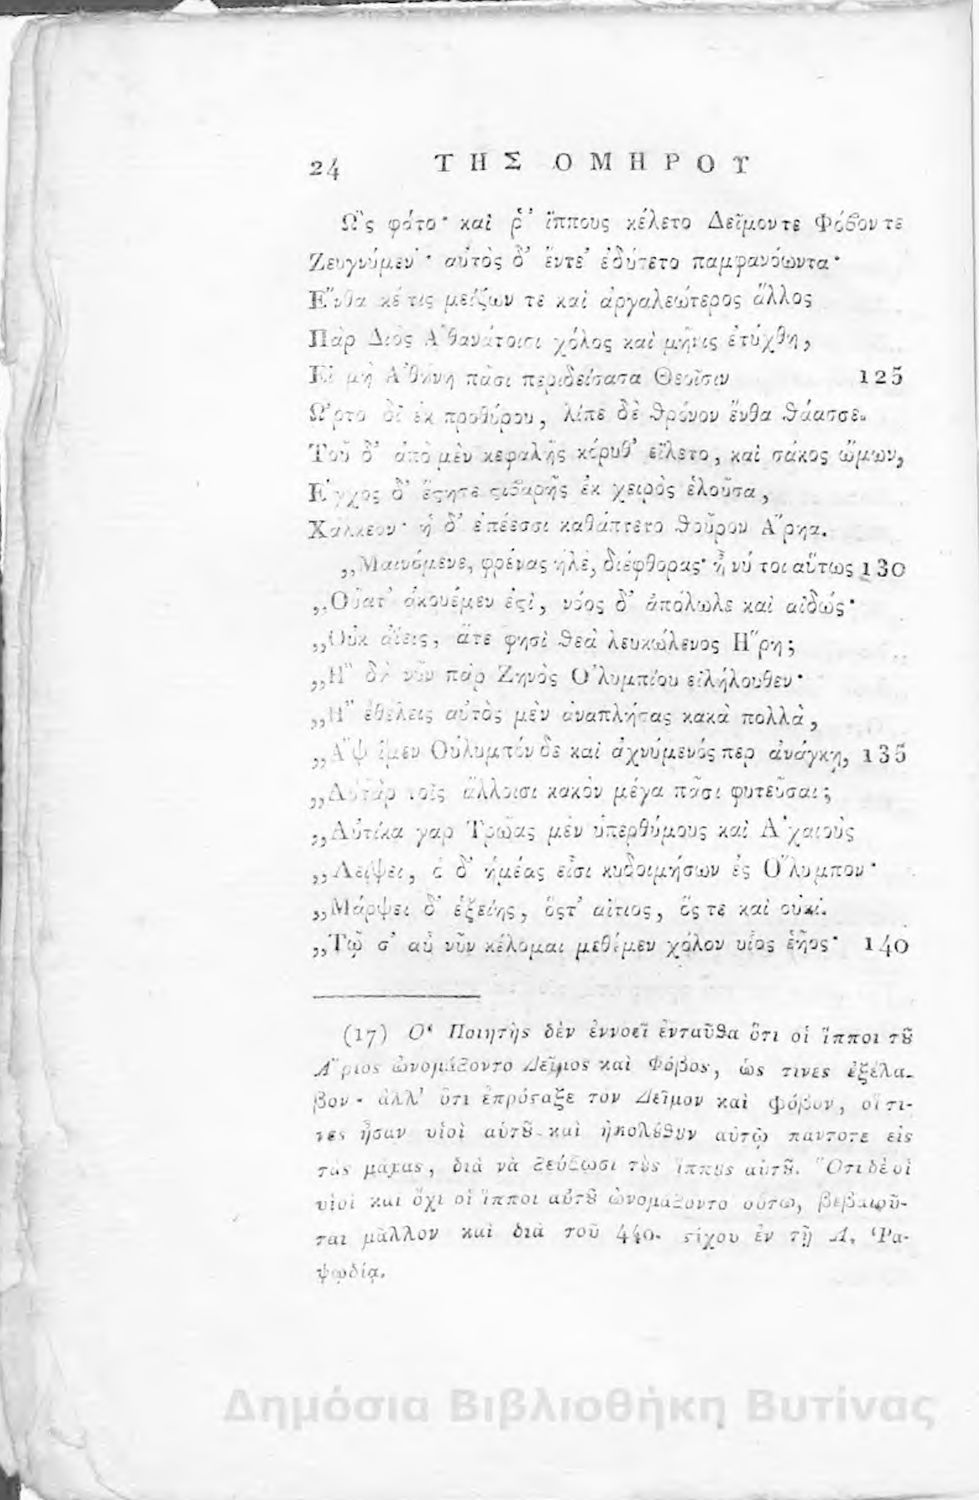 24 ΤΗΣ ΟΜΗΡΟΥ
Ω῝ς φάτο· καί ῥ᾽ ἵππους κέλετο Δεῖμόν τε Φόβον τε
Ζευγνύμεν· αὐτὸς δ᾽ ἔντε᾽ ἐδύτετο παμφανόωντα·
Ε῎νθα κέ τις μείζων τε καὶ ἀργαλεώτερος ἄλλος
Πὰρ Διὸς Α᾽θανάτοισι χόλος καὶ μῆνις ἐτύχθη,
Εἰ μὴ Α᾽θήνη πᾶσι περιδείσασα Θεοῖσιν 125
Ω᾽ρτο δὲ ἐκ προθύρου, λίπε δὲ ϑρόνον ἔνθα ϑάασσε.
Τοῦ δ᾽ ἀπὸ μὲν κεφαλῆς κόρυθ᾽ εἵλετο, καὶ σάκος ὤμων,
Ε῎γχος δ᾽ ἔϛησε ϛιβαρῆς ἐκ χειρὸς ἑλοῦσα,
Χάλκεον· ἡ δ᾽ ἐπέεσσι καθάπτετο ϑοῦρον Α῎ρηα.
„Μαινόμενε, φρένας ἠλὲ, διέφθορας· ἦ νύ τοι αὔτως 130
„Οὔατ᾽ ἀκουέμεν ἐϛὶ, νόος δ᾽ ἀπόλωλε καὶ αἰδώς·
„Οὐκ ἀΐεις, ἅτε φησὶ ϑεὰ λευκώλενος Η῞ρη;
„Η῝ δὴ νῦν πὰρ Ζηνὸς Ο᾽λυμπίου εἰλήλουθεν·
„Η῍ ἐθέλεις αὐτὸς μὲν ἀναπλήσας κακὰ πολλὰ,
„Α῍ψ ἴμεν Οὔλυμπόνδε καὶ ἀχνύμενός περ ἀνάγκῃ, 135
„Αὐτὰρ τοῖς ἄλλοισι κακὸν μέγα πᾶσι φυτεῦσαι;
„Αὐτίκα γὰρ Τρῶας μὲν ὑπερθύμους καὶ Α᾽χαιοὺς
„Λείψει, ὁ δ᾽ ἡμέας εἶσι κυδοιμήσων ἐς Ο῎λυμπον·
„Μάρψει δ᾽ ἑξείης, ὅϛτ᾽ αἴτιος, ὅς τε καὶ οὐκί.
„Τῷ σ᾽ αὖ νῦν κέλομαι μεθέμεν χόλον υἷος ἑῆος· 140
(17) Ο῾ Ποιητὴς δὲν ἐννοεῖ ἐνταῦϑα ὅτι οἱ ἵπποι τȣ͂
Α῎ριος ὠνομάζοντο Δεῖμος καὶ Φόβος, ὡς τινες ἐξέλα-
βον· ἀλλ᾽ ὅτι ἐπρόϛαξε τὸν Δεῖμον καὶ φόβον, οἵ τι-
νες ἦσαν υἱοὶ αὐτȣ͂ καὶ ἠκολȣ́ϑȣν αὐτῷ πάντοτε εἰς
τὰς μάχας, διὰ νὰ ζεύξωσι τȣ̀ς ἵππȣς αὐτȣ͂. Ὅτι δὲ οἱ
υἱοὶ καὶ ὄχι οἱ ἵπποι αὐτȣ͂ ὠνομάζοντο οὕτω, βεβαιοῦ-
ται μᾶλλον καὶ διὰ τοῦ 440. ϛίχου ἐν τῇ Δ, Ῥα-
ψῳδίᾳ.
Δημόσια Βιβλιοθήκη Βυτίνας